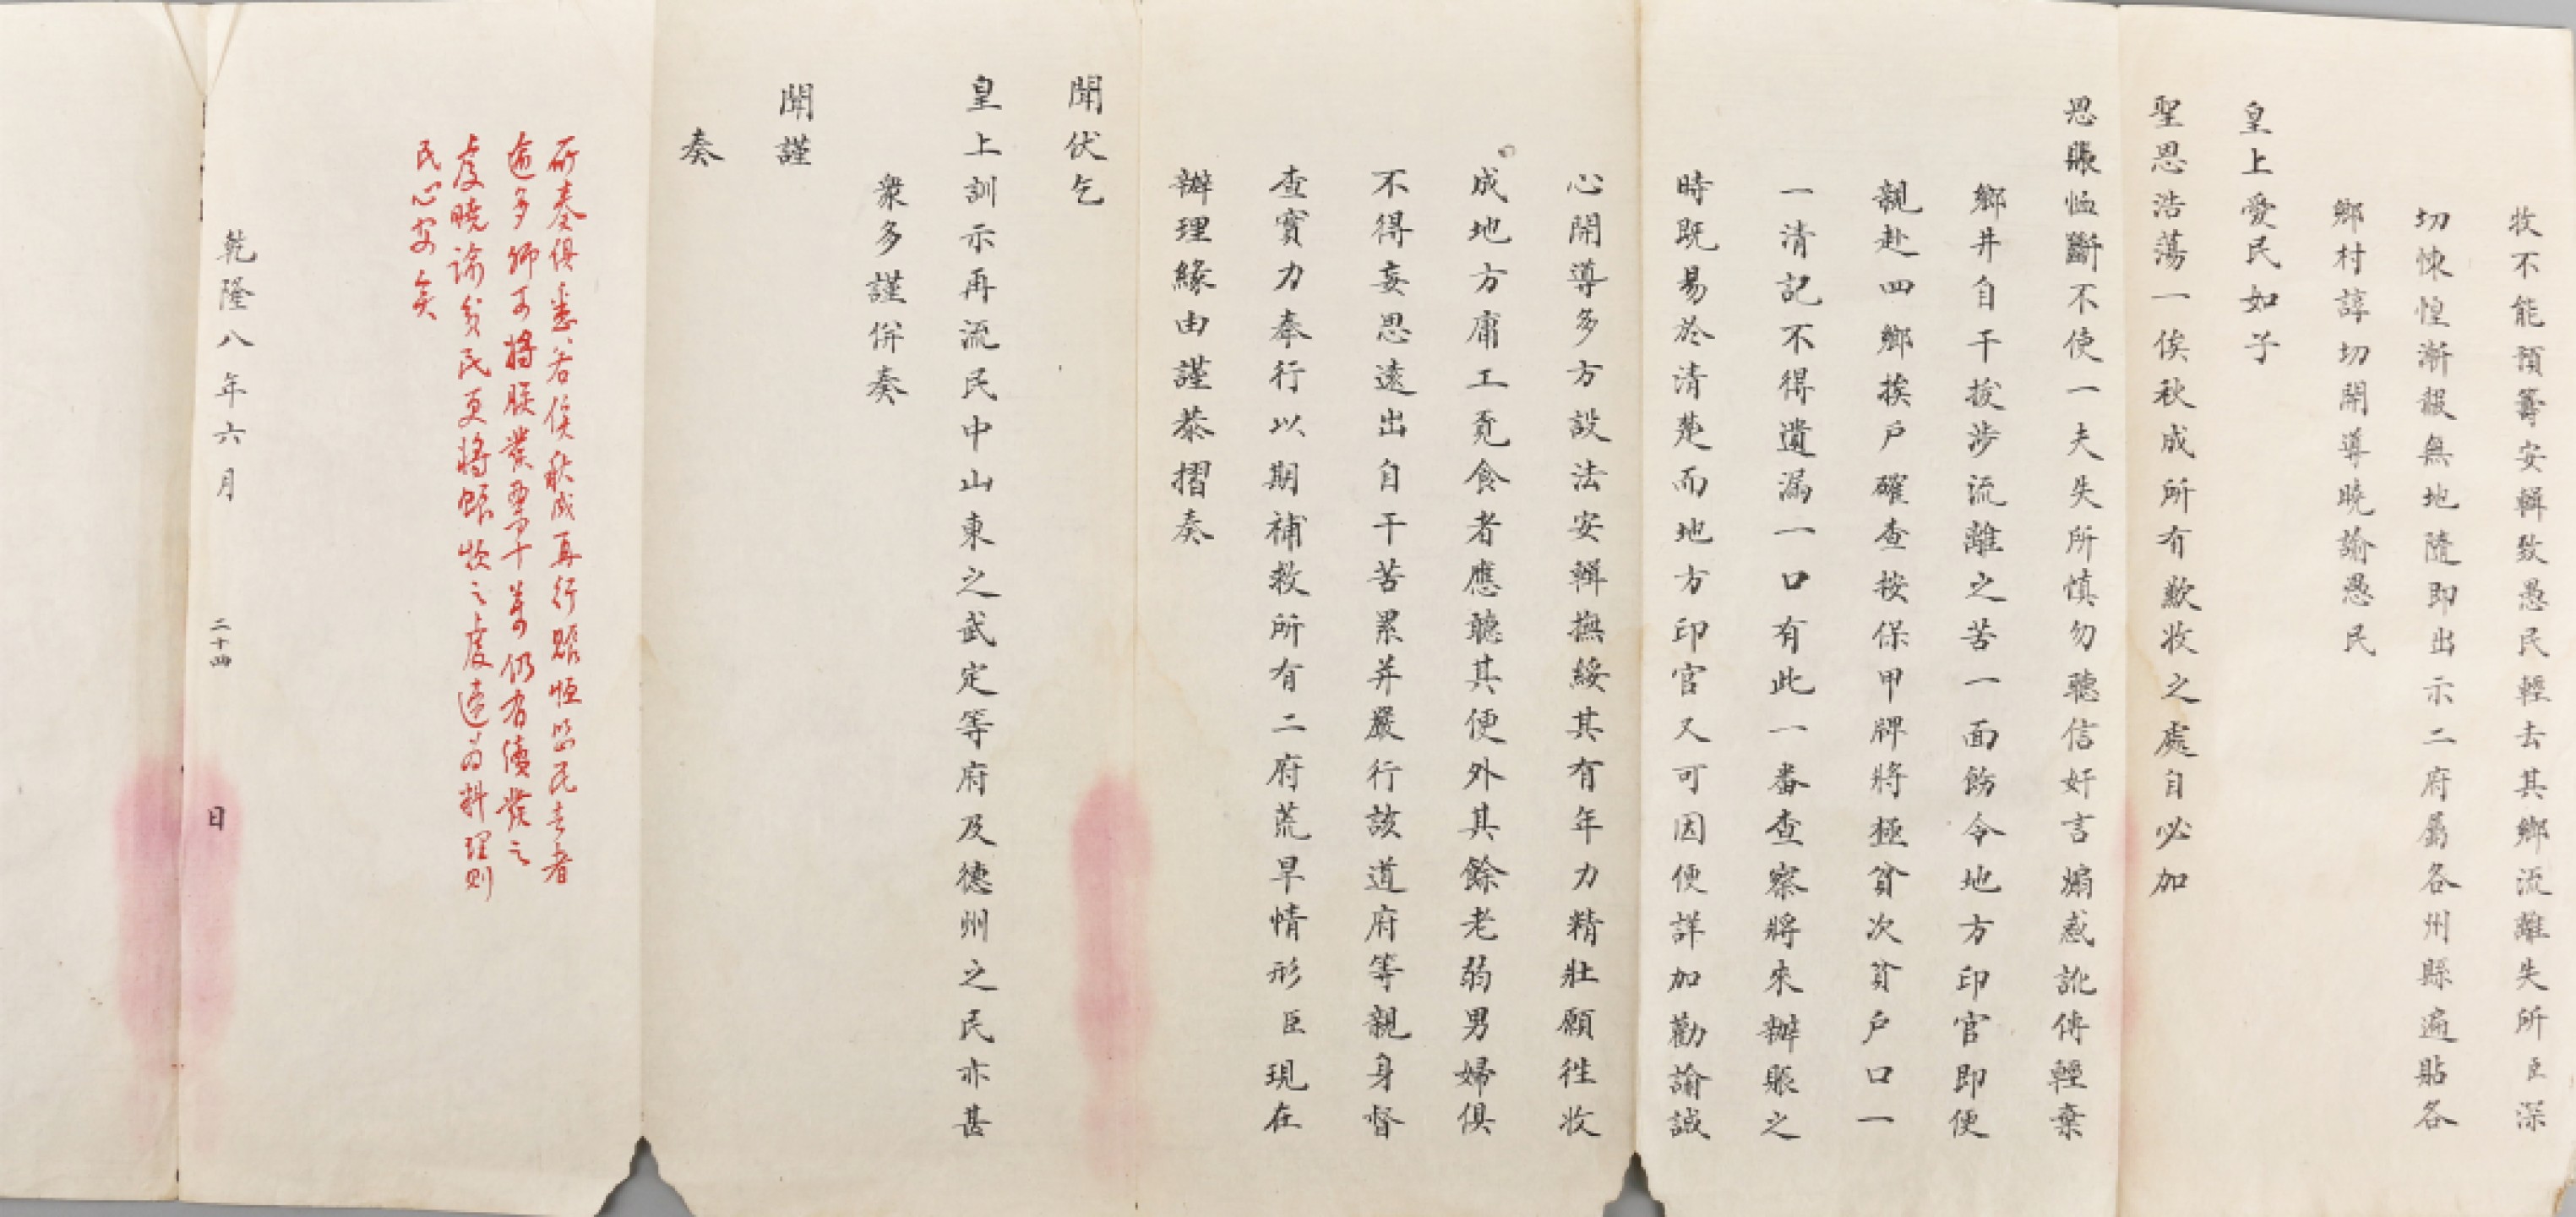 牧不能預籌安輯致愚民輕去其鄉流離失所臣深
切悚惶漸報無地隨即出示二府屬各州縣遍貼各
鄉村諄切開導曉諭愚民
皇上愛民如子
聖恩浩蕩一俟秋成所有歉收之處自必加
恩賬恤斷不使一夫失所慎勿聽信奸言煽惑訛傳輕棄
鄉井自干拔涉流離之苦一面飭令地方印官即便
親赴四鄉挨戶確查按保甲牌將極貧次貧戶口一
一清記不得遺漏一口有此一番查察將來辦賑之
時既易於清楚而地方印官又可因便詳加勸諭誠
心開導多方設法安輯撫綏其有年力精壯願往收
成地方庸工覓食者應聽其便外其餘老弱男婦俱
不得妄思遠出自干苦累并嚴行該道府等親身督
查實力奉行以期補救所有二府荒旱情形臣現在
辦理緣由謹恭摺奏
聞伏乞
皇上訓示再流民中山東之武定等府及德州之民亦甚
衆多謹併奏
聞謹
奏
所奏俱悉若俟秋成再行賑恤恐民去者
逾多師可將朕業登十萬仍有續發之
處曉諭貧民更將賑恤之處速為料理則
民心安矣
乾隆八年六月二十四日